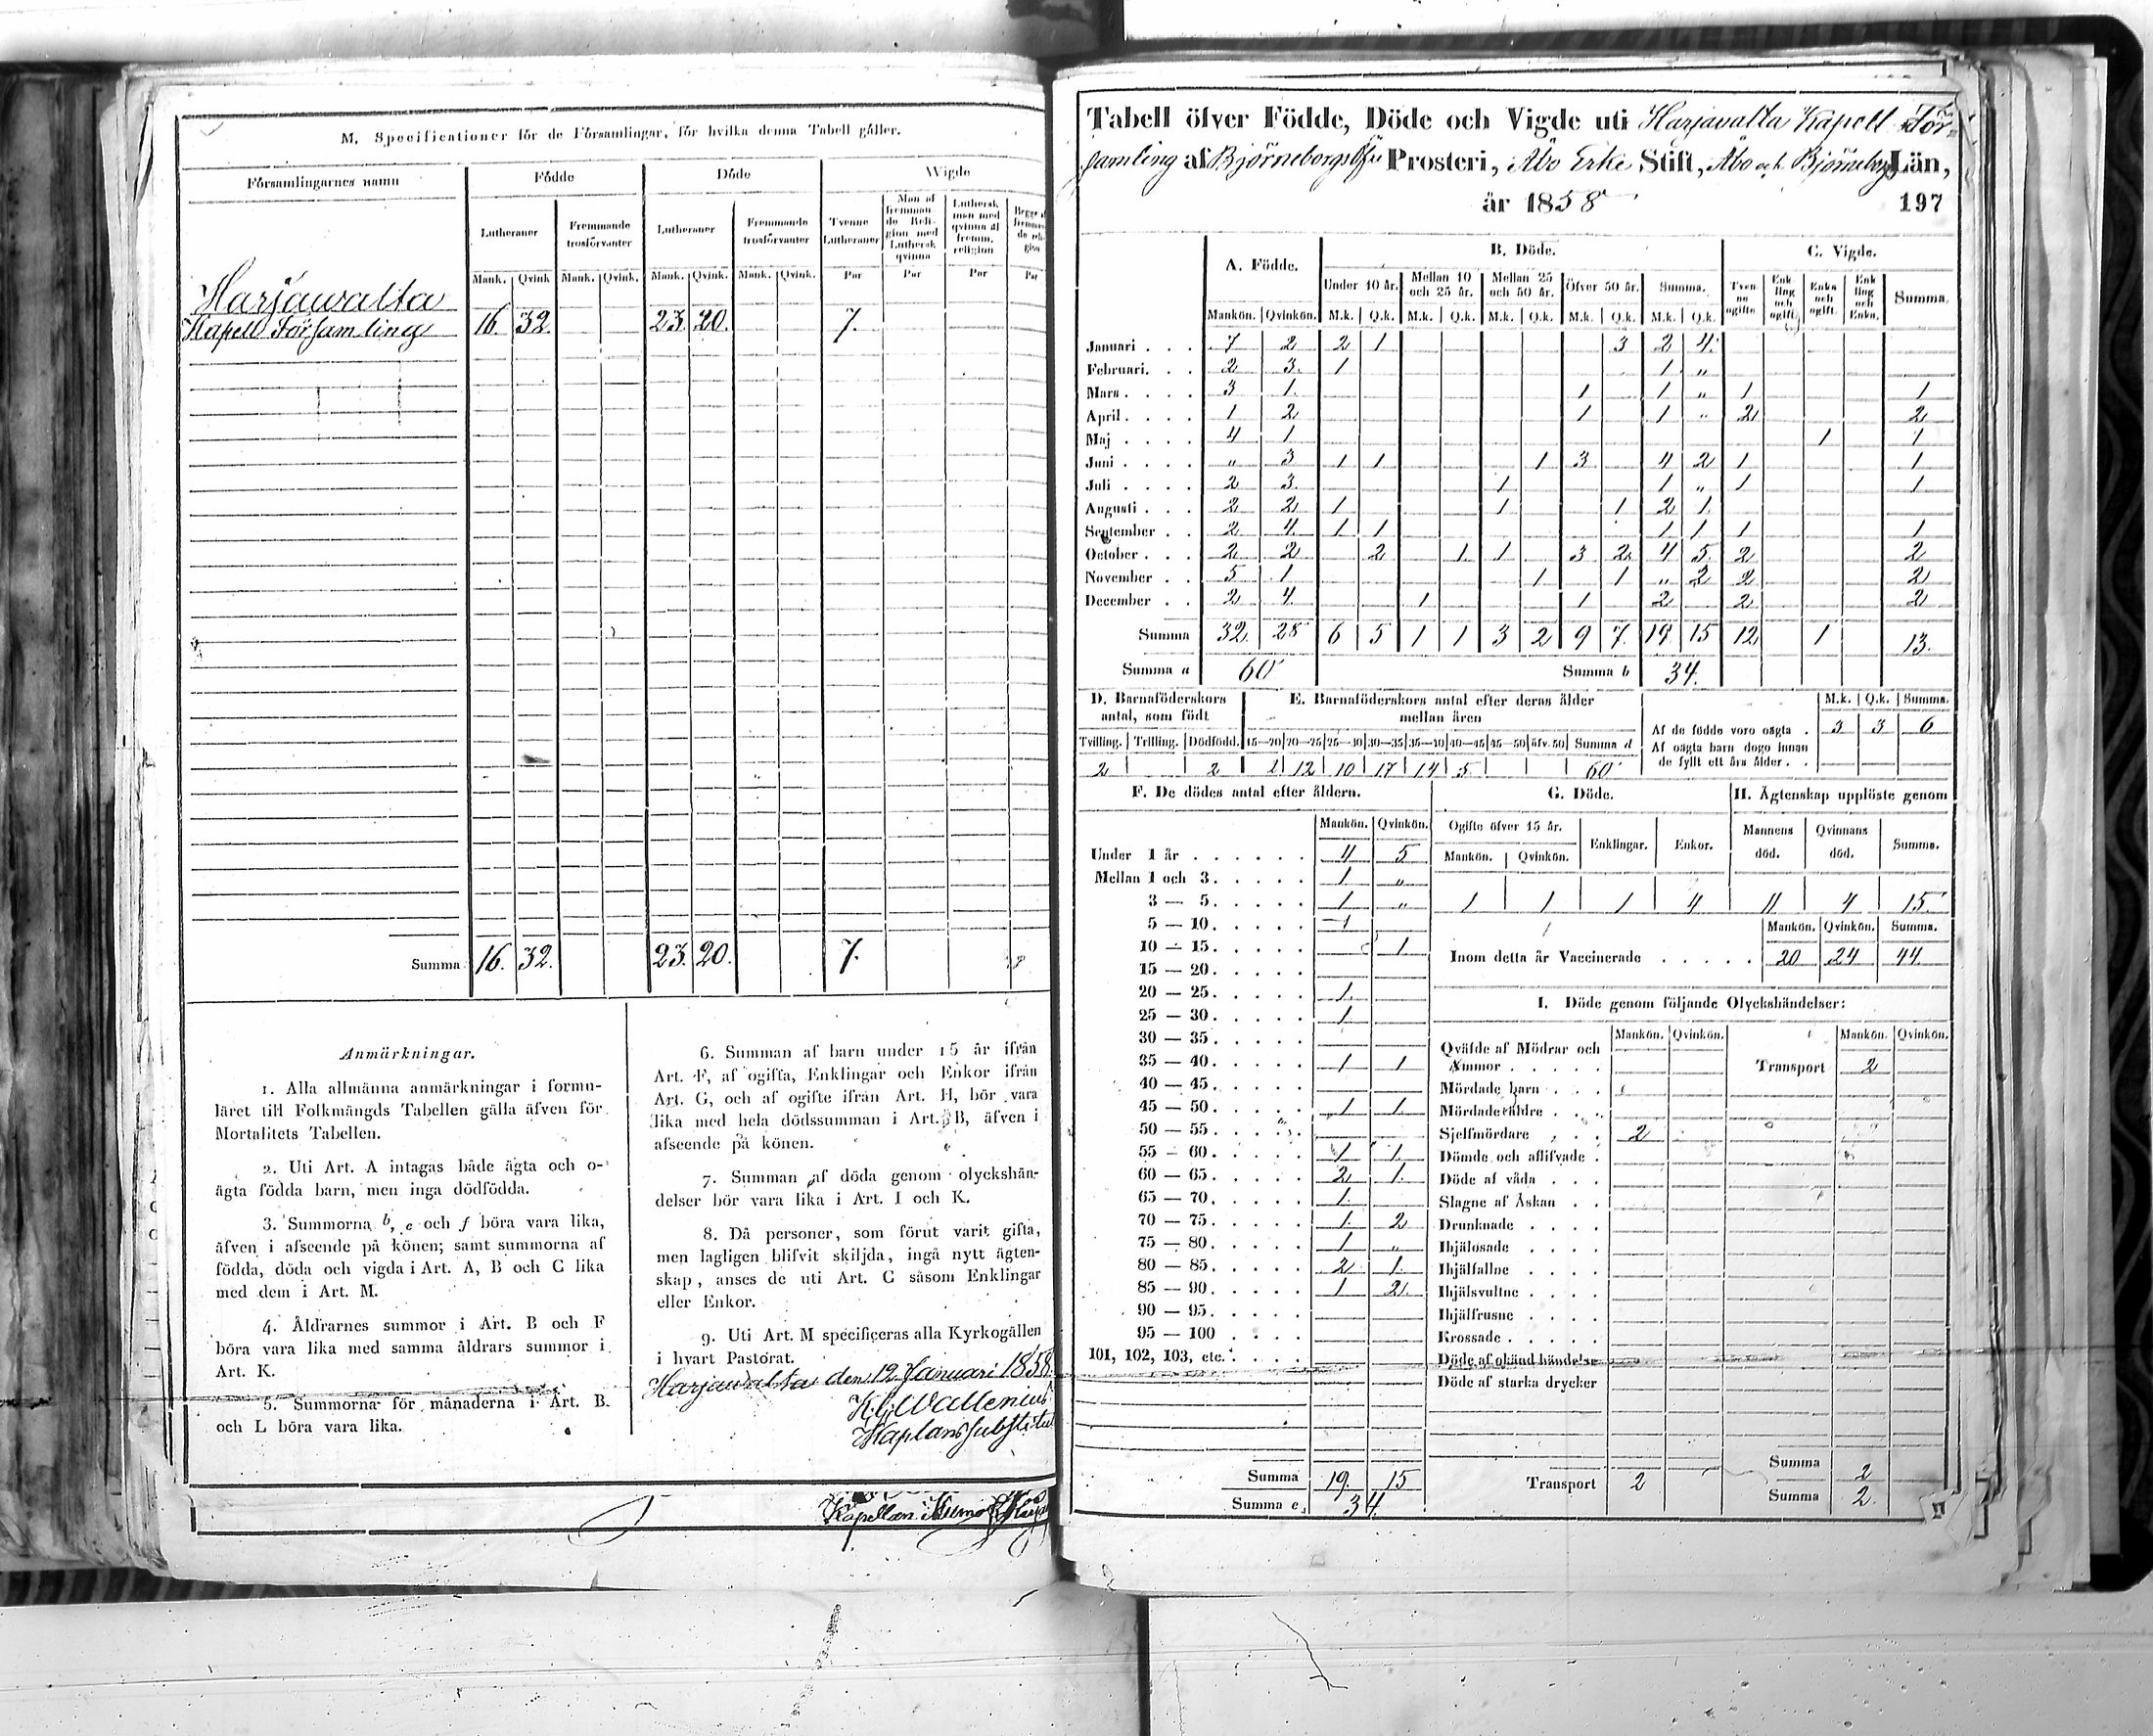 M. Specificationer för de Församlingar, för hvilka denna Tabell gäller.
Församlingarnes namn | Födde | Döde | Wigde
Lutheraner | Fremmande trosförvanter | Lutheraner | Fremmande trosförvanter | Tvenne Lutheraner | Man af fremmande Religion med Luthersk qvinna | Luthersk man med qvinna af fremm. religion
Mank. | Qvink | Mank. | Qvink. | Mank. | Qvink. | Mank. | Qvink. | Par | Par | Par | Par
Harjawalta
Kapell Församling 16 32. 23. 20. 7.
Summa 16. 32. 23. 20. 7.
Anmärkningar.
1. Alla allmänna anmärkningar i formu-
läret till Folkmängds Tabellen gälla äfven för
Mortalitets Tabellen.
2. Uti Art. A intagas både ägta och o-
ägta födda barn, men inga dödfödda.
3. Summorna b, e och f böra vara lika,
äfven i afseende på könen; samt summorna af
födda, döda och vigda i Art. A, B och C lika
med dem i Art. M.
4. Åldrarnes summor i Art. B och F
böra vara lika med samma åldrars summor i
Art. K.
5. Summorna för månaderna i Art. B.
och L böra vara lika.
6. Summan af barn under 15 år ifrån
Art. F, af ogifta, Enklingar och Enkor ifrån
Art. G, och af ogifte ifrån Art. H, bör vara
lika med hela dödssumman i Art. B, äfven i
afseende på könen.
7. Summan af döda genom olyckshän-
delser bör vara lika i Art. I och K.
8. Då personer, som förut varit gifta,
men lagligen blifvit skiljda, ingå nytt ägten-
skap, anses de uti Art. C såsom Enklingar
eller Enkor.
9. Uti Art. M specificeras alla Kyrkogällen
i hvart Pastorat.
Harjawalta den 12 Januari 1858.
Wallenius
Kaplans substitut
Kapellan i Kumo
Tabell öfver Födde, Döde och Vigde uti Harjavalta Kapell För-
samling af Björneborgs Prosteri, Åbo Erke Stift, Åbo och Björneborgs Län,
år 1858 197
A. Födde. | B. Döde. | C. Vigde.
Under 10 år. | Mellan 10 och 25 år. | Mellan 25 och 50 år. | Öfver 50 år. | Summa. | Tvenne ogifte | Enkling och ogift. | Enka och ogift. | Enkling och Enka. | Summa.
Mankön. | Qvinkön. | M.k. | Q.k. | M.k. | Q.k. | M.k. | Q.k. | M.k. | Q.k. | M.k. | Q.k.
Januari . . . 7 2 2 1 3 2 4.
Februari. . . 2 3. 1 1 "
Mars . . . . 3 1. 1 1 " 1 1
April . . . . 1 2 1 1 " 2 2
Maj . . . . 4 1 1 1
Juni . . . . " 3 1 1 1 3 4 2 1 1
Juli . . . . 2 3 1 1 " 1 1
Augusti . . . 2 2 1 1 1 2 1.
September . . 2 4. 1 1 1 1 1 1
October . . . 2 2 2 1 1 3 2 4 5 2 2
November . . 5 1 1 1 " 2 2 2
December . . 2 4. 1 1 2 2 2
Summa 32. 28 6 5 1 1 3 2 9 7. 19 15 12 1 13.
Summa a 60 Summa b 34.
D. Barnaföderskors antal, som födt | E. Barnaföderskors antal efter deras ålder mellan åren | M.k. | Q.k. | Summa.
Tvilling. | Trilling. | Dödfödd. | 15—20 | 20—25 | 25—30 | 30—35 | 35—40 | 40—45 | 45—50 | öfv. 50 | Summa d
2 2 2 12 10 17 14 5 60
Af de födde voro oägta . 3 3 6
Af oägta barn dogo innan
de fyllt ett års ålder . .
F. De dödes antal efter åldern.
Mankön. | Qvinkön.
Under 1 år . . . . . . 4 5
Mellan 1 och 3. . . . . 1 "
3 — 5. . . . . 1 "
5 — 10. . . . . 1
10 — 15. . . . . 1.
15 — 20. . . . .
20 — 25. . . . . 1.
25 — 30. . . . . 1
30 — 35. . . . .
35 — 40. . . . . 1 1
40 — 45. . . . .
45 — 50. . . . . 1 1
50 — 55. . . . .
55 — 60. . . . . 1 1.
60 — 65. . . . . 2 1.
65 — 70. . . . . 1.
70 — 75. . . . . 1. 2
75 — 80. . . . . 1 "
80 — 85. . . . . 2 1.
85 — 90. . . . . 1 2.
90 — 95. . . . .
95 — 100 . . . .
101, 102, 103, etc. . . . .
Summa 19. 15
Summa e. 34.
G. Döde. | H. Ägtenskap upplöste genom
Ogifte öfver 15 år. | Enklingar. | Enkor. | Mannens död. | Qvinnans död. | Summa.
Mankön. | Qvinkön.
1 1 1 4 11 4 15
Mankön. | Qvinkön. | Summa.
Inom detta år Vaccinerade . . . . . 20 24 44.
I. Döde genom följande Olyckshändelser:
Mankön. | Qvinkön. | Mankön. | Qvinkön.
Qväfde af Mödrar och
Ammor . . . . . Transport 2
Mördade barn . . .
Mördade äldre . . .
Sjelfmördare . . . 2
Dömde och aflifvade .
Döde af våda . . .
Slagne af Åskan . .
Drunknade . . . .
Ihjälosade . . . .
Ihjälfallne . . . .
Ihjälsvultne . . . .
Ihjälfrusne . . . .
Krossade . . . . .
Döde af okänd händelse
Döde af starka drycker
Transport 2
Summa 2
Summa 2.